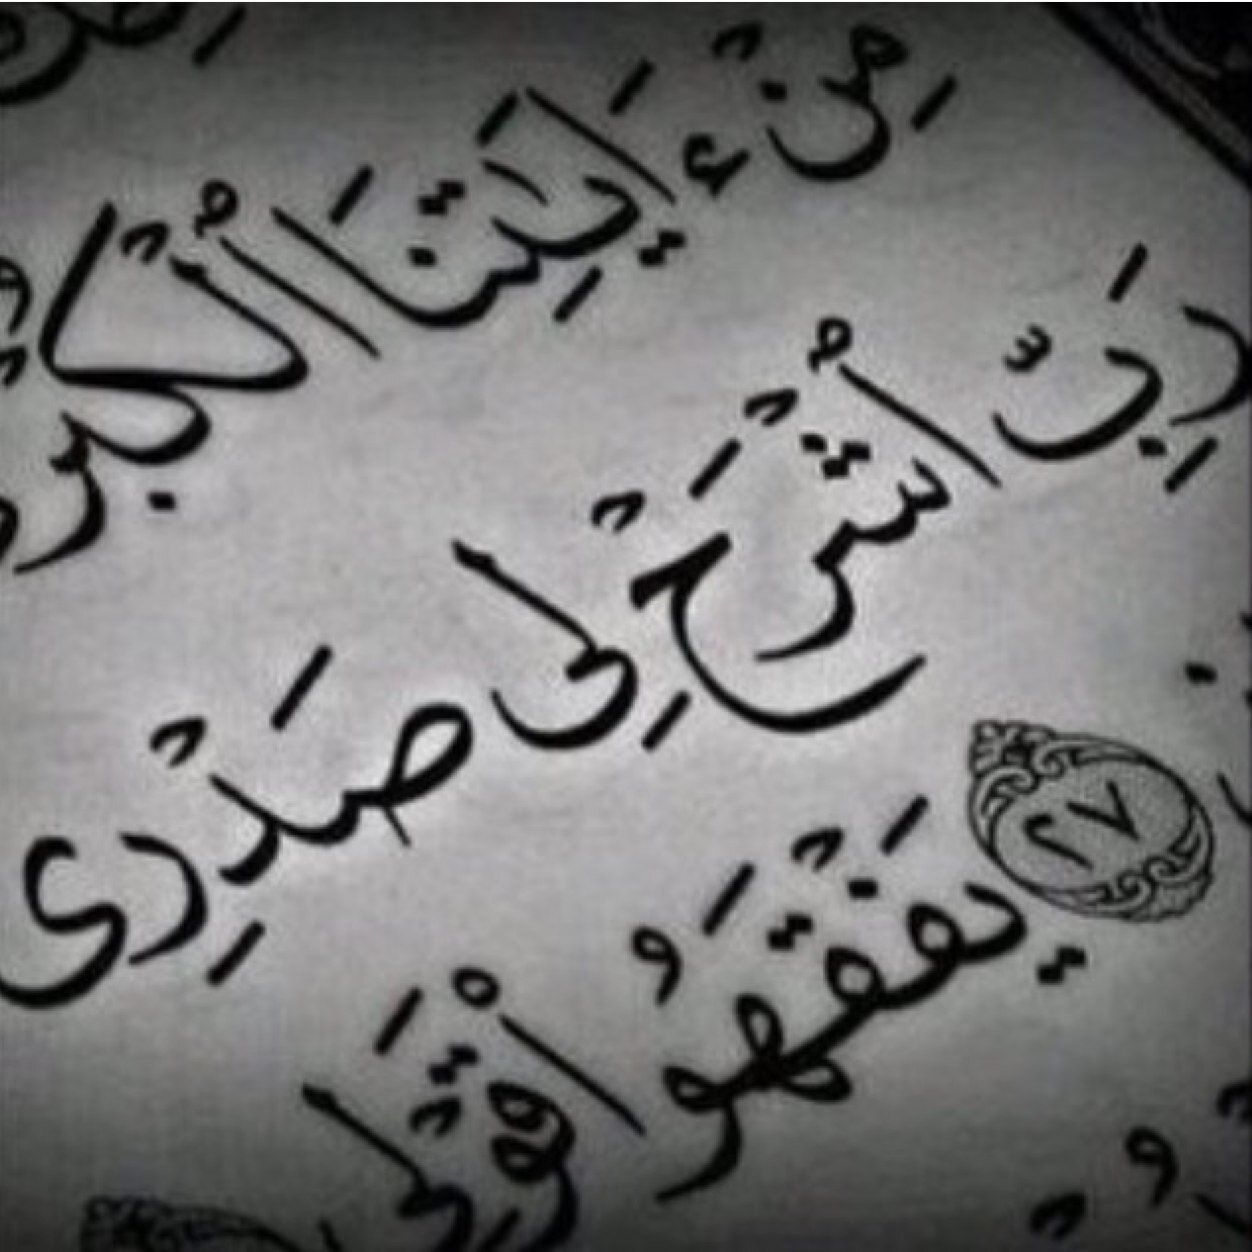 مِنْ ءَايَٰتِنَا ٱلْكُبْرَ
رَبِّ ٱشْرَحْ لِى صَدْرِى
٢٧ يَفْقَهُوا۟ قَوْلِى